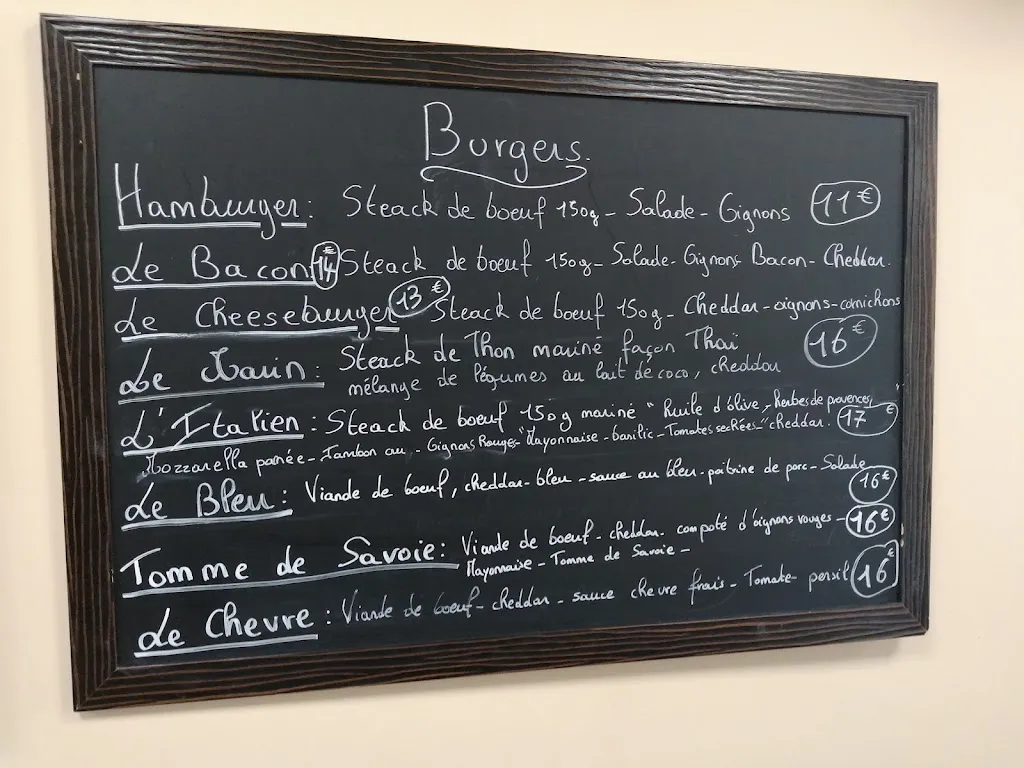 Burgers.
Hamburger : Steack de boeuf 150g - Salade - Oignons 11€
Le Bacon 14€ Steack de boeuf 150g - Salade - Oignons Bacon - Cheddar.
Le Cheeseburger 13€ Steack de boeuf 150g - Cheddar - oignons - cornichons
Le Marin : Steack de Thon mariné façon Thaï 16€
mélange de légumes au lait de coco, cheddar
L'Italien : Steack de boeuf 150g mariné "Huile d'olive, Herbes de provences"
Mozzarella panée - Jambon cru - Oignons Rouges - "Mayonnaise - basilic - Tomates sechées" cheddar. 17€
Le Bleu : Viande de boeuf, cheddar - bleu - sauce au bleu - poitrine de porc - Salade 16€
Tomme de Savoie : Viande de boeuf - cheddar. compoté d'oignons rouges - 16€
Mayonnaise - Tomme de Savoie -
Le Chevre : Viande de boeuf - cheddar - sauce chevre frais - Tomate - persil 16€